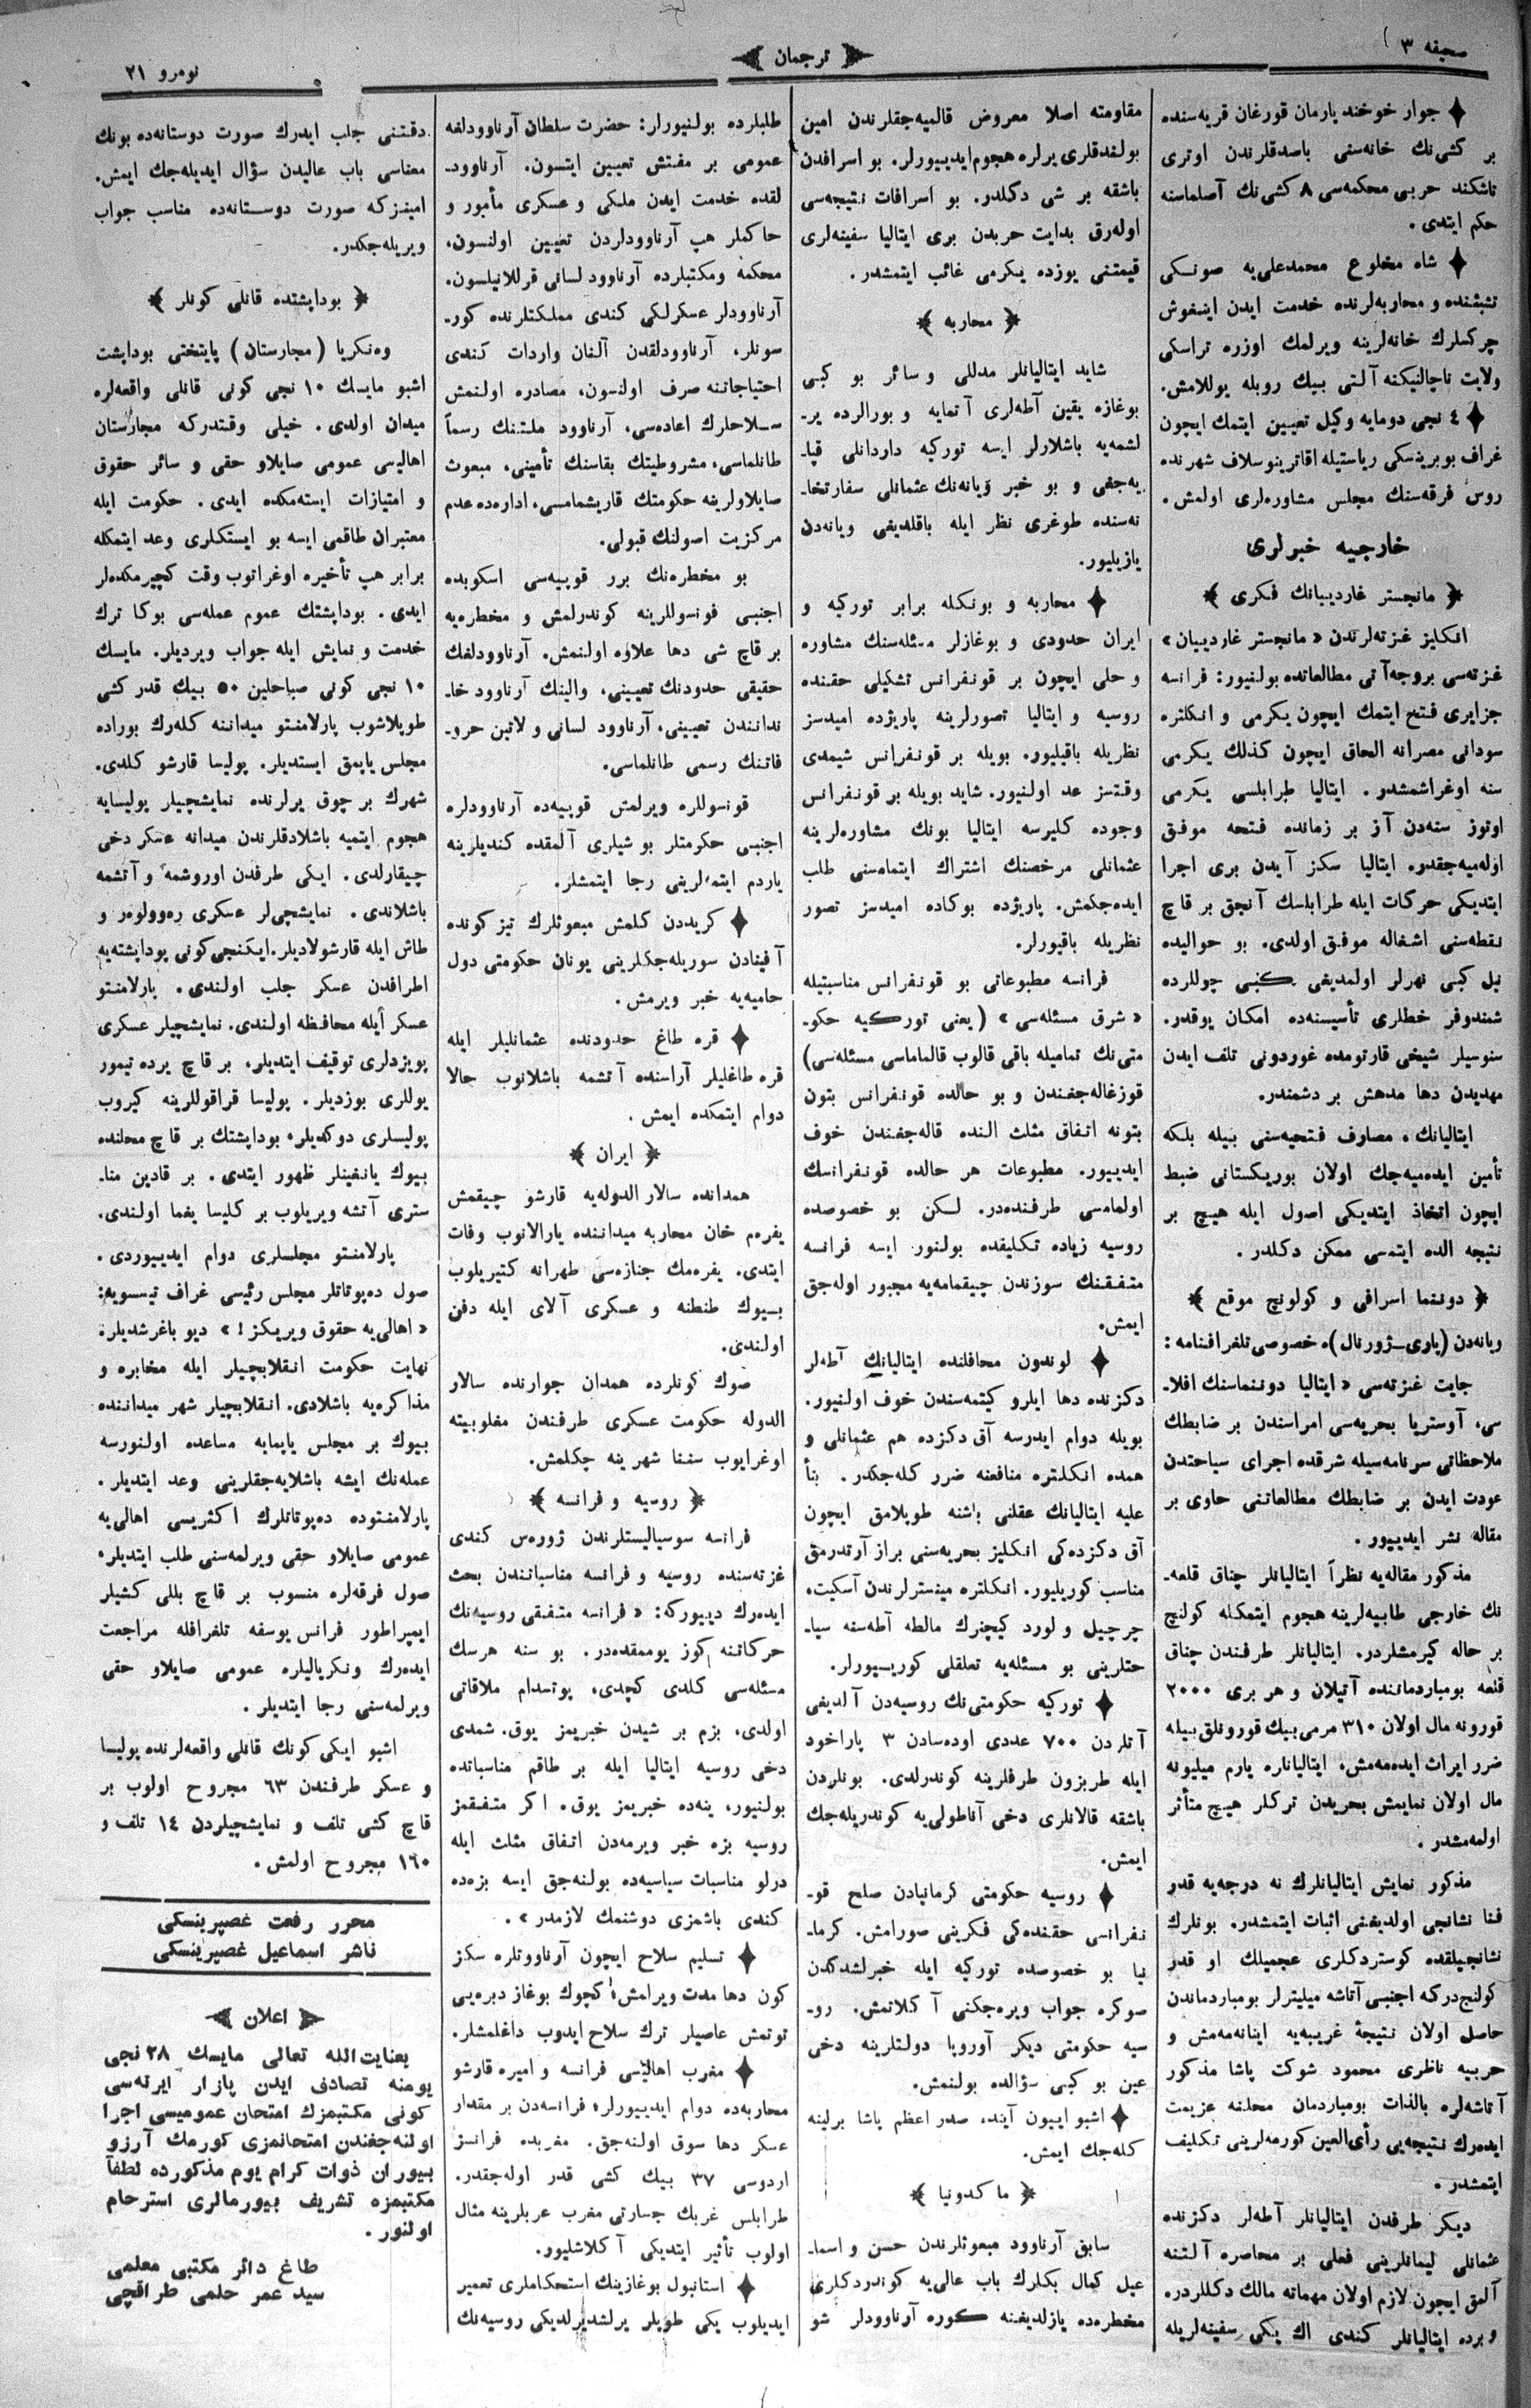 صحیفه ٣
ترجمان
نومرو ٢١
جوار خوخند یارمان قورغان قریه‌سنده
بر کشی‌نك خانه‌سنی باصدقلرندن اوتری
تاشکند حربی محکمه‌سی ٨ کشی‌نك آصلماسنه
حکم ایتدی.
شاه مخلوع محمدعلی‌یه صوڭکی
تشبثنده و محاربه‌لرنده خدمت ایدن اینغوش
چرکسلرك خانه‌لرینه ویرلمك اوزره تراسکی
ولایت ناچالنیکنه آلتی بیك روبله یوللامش.
٤ نجی دومایه وکیل تعیین ایتمك ایچون
غراف بوبرینسکی ریاستیله اقاترینوسلاف شهرنده
روس فرقه‌سنك مجلس مشاوره‌لری اولمش.
خارجیه خبرلری
مانچستر غاردییانك فکری
انکلیز غزته‌لرندن «مانچستر غاردییان»
غزته‌سی بروجه‌آتی مطالعاتده بولنیور: فرانسه
جزایری فتح ایتمك ایچون یکرمی و انکلتره
سودانی مصرانه الحاق ایچون کذلك یکرمی
سنه اوغراشمشدر. ایتالیا طرابلسی یکرمی
اوتوز سنه‌دن آز بر زمانده فتحه موفق
اوله‌میه‌جقدو. ایتالیا سکز آیدن بری اجرا
ایتدیکی حرکات ایله طرابلسك آنجق بر قاچ
نقطه‌سنی اشغاله موفق اولدی. بو حوالیده
نیل کبی نهرلر اولمدیغی کبی چوللرده
شمندوفر خطلری تأسیسنه‌ده امکان یوقدر.
سنوسیلر شیخی قارتومده غوردونی تلف ایدن
مهدیدن دها مدهش بر دشمندر.
ایتالیانك، مصارف فتحیه‌سنی بیله بلکه
تأمین ایده‌میه‌جك اولان بوریکستانی ضبط
ایچون اتخاذ ایتدیکی اصول ایله هیچ بر
نتیجه الده ایتمسی ممکن دکلدر.
دونما اسرافی و کولونچ موقع
ویانه‌دن (پاری-ژورنال)ه خصوصی تلغرافنامه:
جایت غزته‌سی «ایتالیا دونماسنك افلا-
سی، آوستریا بحریه‌سی امراسندن بر ضابطك
ملاحظاتی سرنامه‌سیله شرقده اجرای سیاحتدن
عودت ایدن بر ضابطك مطالعاتنی حاوی بر
مقاله نشر ایدییور.
مذکور مقاله‌یه نظراً ایتالیانلر چناق قلعه-
نك خارجی طابیه‌لرینه هجوم ایتمکله کولنج
بر حاله کیرمشلردر. ایتالیانلر طرفندن چناق
قلعه بومباردماننده آتیلان و هر بری ٢٠٠٠
قورونه مال اولان ٣١٠ مرمی بیك قورونلق بیله
ضرر ایراث ایده‌مه‌مش، ایتالیاناره یارم میلیونه
مال اولان نمایمش بحریدن ترکلر هیچ متأثر
اولمه‌مشدر.
مذکور نمایش ایتالیانلرك نه درجه‌یه قدر
فنا نشانجی اولدیغنی اثبات ایتمشدر. بونلرك
نشانجیلقده کوستردکلری عجمیلك او قدر
کولنج‌درکه اجنبی آتاشه میلیترلر بومباردماندن
حاصل اولان نتیجۀ غریبه‌یه اینانه‌مه‌مش و
حربیه ناظری محمود شوکت پاشا مذکور
آتاشه‌لره بالذات بومباردمان محلنه عزیمت
ایده‌رك نتیجه‌یی رأی‌العین کورمه‌لرینی تکلیف
ایتمشدر.
دیکر طرفدن ایتالیانلر آطه‌لر دکزنده
عثمانلی لیمانلرینی فعلی بر محاصره آلتنه
آلمق ایچون لازم اولان مهماته مالك دکللردر.
وبرده ایتالیانلر کندی اك یکی سفینه‌لریله
مقاومته اصلا معروض قالمیه‌جقلرندن امین
بولندقلری یرلره هجوم ایدییورلر. بو اسرافدن
باشقه بر شی دکلدر. بو اسرافات نتیجه‌سی
اوله‌رق بدایت حربدن بری ایتالیا سفینه‌لری
قیمتنی یوزده یکرمی غائب ایتمشدر.
محاربه
شاید ایتالیانلر مدللی و سائر بو کبی
بوغازه یقین آطه‌لری آتمایه و بورالرده یر-
لشمه‌یه باشلارلر ایسه تورکیه داردانلی قپا-
یه‌جغی و بو خبر ویانه‌نك عثمانلی سفارتخا-
نه‌سنده طوغری نظر ایله باقلدیغی ویانه‌دن
یازیلیور.
محاربه و بونکله برابر تورکیه و
ایران حدودی و بوغازلر مسئله‌سنك مشاوره
و حلی ایچون بر قونفرانس تشکیلی حقنده
روسیه و ایتالیا تصورلرینه پاریژده امیدسز
نظریله باقیلیور. بویله بر قونفرانس شیمدی
وقتسز عد اولنیور. شاید بویله بر قونفرانس
وجوده کلیرسه ایتالیا بونك مشاوره‌لرینه
عثمانلی مرخصنك اشتراك ایتمامه‌سنی طلب
ایده‌جکمش. پاریژده بوکاده امیدسز تصور
نظریله باقیورلر.
فرانسه مطبوعاتی بو قونفرانس مناسبتیله
«شرق مسئله‌سی» (یعنی تورکیه حکو-
متی‌نك تمامیله باقی قالوب قالماماسی مسئله‌سی)
قوزغاله‌جغندن و بو حالده قونفرانس بتون
بتونه اتفاق مثلث النده قاله‌جغندن خوف
ایدییور. مطبوعات هر حالده قونفرانسك
اولمامسی طرفنده‌در. لکن بو خصوصده
روسیه زیاده تکلیفده بولنور ایسه فرانسه
متفقنك سوزندن چیقمامه‌یه مجبور اوله‌جق
ایمش.
لوندون محافلنده ایتالیانك آطه‌لر
دکزنده دها ایلرو کیتمه‌سندن خوف اولنیور.
بویله دوام ایدرسه آق دکزده هم عثمانلی و
همده انکلتره منافعنه ضرر کله‌جکدر. بنأ
علیه ایتالیانك عقلنی باشنه طوپلامق ایچون
آق دکزده‌کی انکلیز بحریه‌سنی براز آرتدرمق
مناسب کوریلیور. انکلتره مینسترلرندن آسکیت،
چرچیل و لورد کیچنرك مالطه آطه‌سنه سیا-
حتلرینی بو مسئله‌یه تعلقلی کوریسیورلر.
تورکیه حکومتی‌نك روسیه‌دن آلدیغی
آتلردن ٧٠٠ عددی اوده‌سادن ٣ پاراخود
ایله طربزون طرفلرینه کوندرلدی. بونلردن
باشقه قالانلری دخی آناطولی‌یه کوندریله‌جك
ایمش.
روسیه حکومتی کرمانیادن صلح قو-
نفرانسی حقنده‌کی فکرینی صورامش. کرما-
نیا بو خصوصده تورکیه ایله خبرلشدکدن
صوکره جواب ویره‌جکنی آکلاتمش. رو-
سیه حکومتی دیکر آوروپا دولتلرینه دخی
عین بو کبی سؤالده بولنمش.
اشبو اییون آینده صدر اعظم پاشا برلینه
کله‌جك ایمش.
ماکدونیا
سابق آرناوود مبعوثلرندن حسن و اسما-
عیل کمال بکلرك باب عالی‌یه کوندردکلری
مخطره‌ده یازلدیغنه کوره آرناوودلر شو
طلبلرده بولنیورلر: حضرت سلطان آرناوودلغه
عمومی بر مفتش تعیین ایتسون. آرناوود-
لقده خدمت ایدن ملکی و عسکری مأمور و
حاکملر هپ آرناوودلردن تعیین اولنسون،
محکمه ومکتبلرده آرناوود لسانی قوللانیلسون.
آرناوودلر عسکرلکی کندی مملکتلرنده کور-
سونلر، آرناوودلقدن آلنان واردات کندی
احتیاجاتنه صرف اولنسون، مصادره اولنمش
سلاحلرك اعاده‌سی، آرناوود ملتنك رسماً
طانلماسی، مشروطیتك بقاسنك تأمینی، مبعوث
صایلاولرینه حکومتك قاریشمامسی، اداره‌ده عدم
مرکزیت اصولنك قبولی.
بو مخطره‌نك برر قوپیه‌سی اسکوبده
اجنبی قونسوللرینه کوندرلمش و مخطره‌یه
بر قاچ شی دها علاوه اولنمش. آرناوودلغك
حقیقی حدودنك تعیینی، والینك آرناوود خا-
نداننندن تعیینی، آرناوود لسانی و لاتین حرو-
فاتنك رسمی طانلماسی.
قونسوللره ویرلمش قوپیه‌ده آرناوودلره
اجنبی حکومتلر بو شیلری آلمقده کندیلرینه
یاردم ایتمه‌لرینی رجا ایتمشلر.
کریددن کلمش مبعوثلرك تیز کونده
آفینادن سوریله‌جکلرینی یونان حکومتی دول
حامیه‌یه خبر ویرمش.
قره طاغ حدودنده عثمانلیلر ایله
قره طاغلیلر آراسنده آتشمه باشلانوب حالا
دوام ایتمکده ایمش.
ایران
همدانده سالار الدوله‌یه قارشو چیقمش
یفرم خان محاربه میداننده یارالانوب وفات
ایتدی. یفره‌مك جنازه‌سی طهرانه کتیریلوب
بیوك طنطنه و عسکری آلای ایله دفن
اولندی.
صوك کونلرده همدان جوارنده سالار
الدوله حکومت عسکری طرفندن مغلوبیته
اوغرایوب سننا شهرینه چکلمش.
روسیه و فرانسه
فرانسه سوسیالیستلرندن ژوره‌س کندی
غزته‌سنده روسیه و فرانسه مناسباتندن بحث
ایده‌رك دییورکه: «فرانسه متفقی روسیه‌نك
حرکاتنه کوز یوممقده‌در. بو سنه هرسك
مسئله‌سی کلدی کچدی، پوتسدام ملاقاتی
اولدی، بزم بر شیدن خبریمز یوق. شمدی
دخی روسیه ایتالیا ایله بر طاقم مناسباتده
بولنیور، ینه‌ده خبریمز یوق. اکر متفقمز
روسیه بزه خبر ویرمه‌دن اتفاق مثلث ایله
درلو مناسبات سیاسیه‌ده بولنه‌جق ایسه بزه‌ده
کندی باشمزی دوشنمك لازمدر».
تسلیم سلاح ایچون آرناووتلره سکز
کون دها مدت ویرامش؛ کچوك بوغاز دبره‌یی
توتمش عاصیلر ترك سلاح ایدوب داغلمشلر.
مغرب اهالیسی فرانسه و امیره قارشو
محاربه‌ده دوام ایدییورلر، فرانسه‌دن بر مقدار
عسکر دها سوق اولنه‌جق. مغربده فرانسز
اردوسی ٣٧ بیك کشی قدر اوله‌جقدر.
طرابلس غربك جسارتی مغرب عربلرینه مثال
اولوب تأثیر ایتدیکی آکلاشلیور.
استانبول بوغازینك استحکاملری تعمیر
ایدیلوب یکی طوپلر یرلشدیرلدیکی روسیه‌نك
دقتنی جلب ایدرك صورت دوستانه‌ده بونك
معناسی باب عالیدن سؤال ایدیله‌جك ایمش.
امینزکه صورت دوستانه‌ده مناسب جواب
ویریله‌جکدر.
بوداپشتده قانلی کونلر
وه‌نکریا (مجارستان) پایتختی بوداپشت
اشبو مایسك ١٠ نجی کونی قانلی واقعه‌لره
میدان اولدی. خیلی وقتدرکه مجارستان
اهالیسی عمومی صایلاو حقی و سائر حقوق
و امتیازات ایسته‌مکده ایدی. حکومت ایله
معتبران طاقمی ایسه بو ایستکلری وعد ایتمکله
برابر هپ تأخیره اوغراتوب وقت کچیرمکده‌لر
ایدی. بوداپشتك عموم عمله‌سی بوکا ترك
خدمت و نمایش ایله جواب ویردیلر. مایسك
١٠ نجی کونی صباحلین ٥٠ بیك قدر کشی
طوپلاشوب پارلامنتو میداننه کله‌رك بوراده
مجلس یاپمق ایستدیلر. پولیسا قارشو کلدی.
شهرك بر چوق یرلرنده نمایشچیلر پولیسایه
هجوم ایتمیه باشلادقلرندن میدانه عسکر دخی
چیقارلدی. ایکی طرفدن اوروشمه و آتشمه
باشلاندی. نمایشچی‌لر عسکری ره‌وولوه‌ر و
طاش ایله قارشولادیلر. ایکنجی کونی بوداپشته‌یه
اطرافدن عسکر جلب اولندی. پارلامنتو
عسکر ایله محافظه اولندی. نمایشچیلر عسکری
پویزدلری توقیف ایتدیلر، بر قاچ یرده تیمور
یوللری بوزدیلر. پولیسا قراقوللرینه کیروب
پولیسلری دوکدیلر، بوداپشتك بر قاچ محلنده
بیوك یانغینلر ظهور ایتدی. بر قادین منا-
ستری آتشه ویریلوب بر کلیسا یغما اولندی.
پارلامنتو مجلسلری دوام ایدییوردی.
صول ده‌پوتاتلر مجلس رئیسی غراف تیسسویه:
«اهالی‌یه حقوق ویریکز!» دیو باغرشدیلر.
نهایت حکومت انقلابچیلر ایله مخابره و
مذاکره‌یه باشلادی. انقلابچیلر شهر میداننده
بیوك بر مجلس یاپمایه مساعده اولنورسه
عمله‌نك ایشه باشلایه‌جقلرینی وعد ایتدیلر.
پارلامنتوده ده‌پوتاتلرك اکثریسی اهالی‌یه
عمومی صایلاو حقی ویرلمه‌سنی طلب ایتدیلر.
صول فرقه‌لره منسوب بر قاچ بللی کشیلر
ایمپراطور فرانس یوسفه تلغرافله مراجعت
ایده‌رك ونکریالیلره عمومی صایلاو حقی
ویرلمه‌سنی رجا ایتدیلر.
اشبو ایکی کونك قانلی واقعه‌لرنده پولیسا
و عسکر طرفندن ٦٣ مجروح اولوب بر
قاچ کشی تلف و نمایشچیلردن ١٤ تلف و
١٦٠ مجروح اولمش.
محرر رفعت غصپرینسکی
ناشر اسماعیل غصپرینسکی
اعلان
بعنایت‌الله تعالی مایسك ٢٨ نجی
یومنه تصادف ایدن پازار ایرته‌سی
کونی مکتبمزك امتحان عمومیسی اجرا
اولنه‌جغندن امتحانمزی کورمك آرزو
بیوران ذوات کرام یوم مذکورده لطفاً
مکتبمزه تشریف بیورمالری استرحام
اولنور.
طاغ دائر مکتبی معلمی
سید عمر حلمی طراقچی